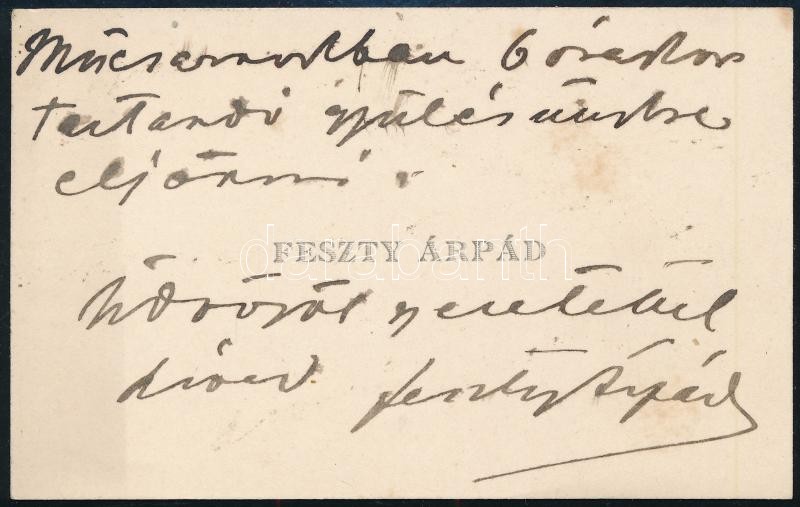 Műcsarnokban 6 órakor
tartandó gyülésünkre
eljönni.
FESZTY ÁRPÁD
darabanth
Üdvözöl szeretettel
híved Feszty Árpád